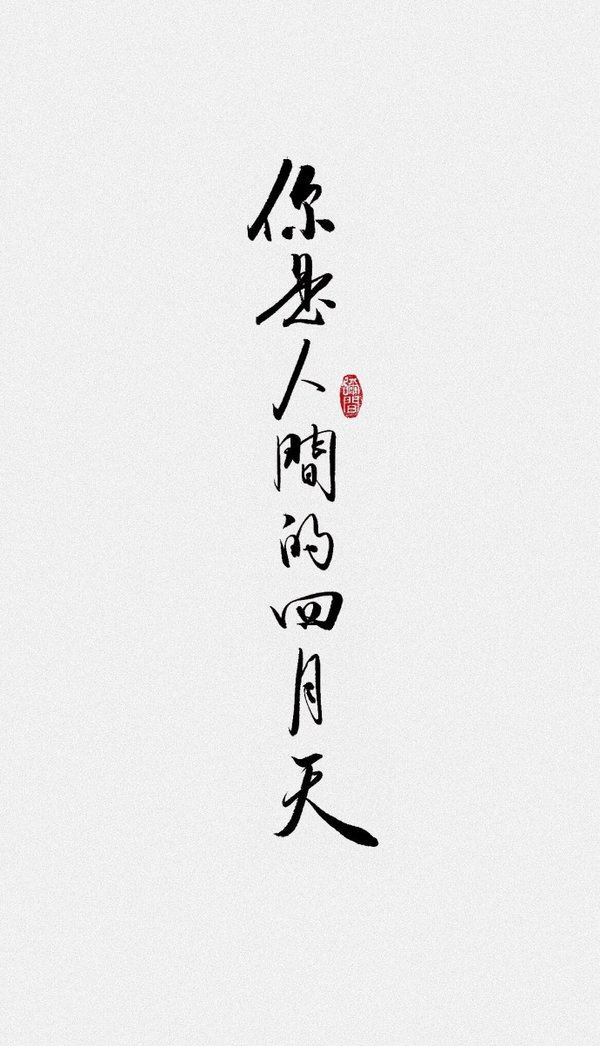 你是人間的四月天